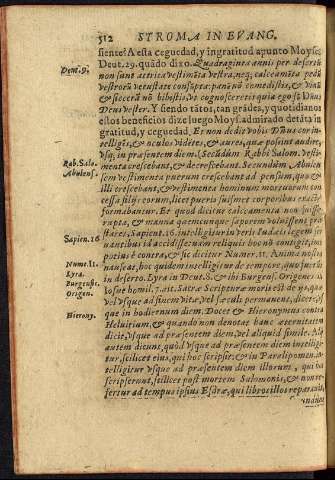 512 STROMA IN EVANG.
siente? A esta ceguedad, y ingratitud apunto Moyses
Deut. 29. quādo dixo. Quadraginta annis per desertū
Deut. 9.
non sunt attrita vestimēta vestra, neq; calceamēta pedū
vestrorū vetustate consūpta: panē nō comedistis, & vinū
& siceră nō bibistis: vt cognosceretis quia ego sū Dñus
Deus vester. Y siendo tātos, tan grādes, y quotidianos
estos beneficios dize luego Moysē admirado desta in
gratitud, y ceguedad. Et non dedit vobis Dñus cor in-
telligēs, & oculos vidētes, & aures, quæ posint audire,
vsq; in præsentem diem. Secūdum Rabbi Salom. vesti-
Rab. Salo.
menta crescebant, & decrescebant. Secundum Abulen
Abulens.
sem vestimenta puerum crescebant ad pensum, quo &
illi crescebant, & vestimenta hominum mortuorum con
cessa filijs eorum, licet pueris suismet corporibus coaptē
formabantur. Et quod dicitur calceamenta non fuisse
rupta, & manna quemcunque saporem voluissent præ
stare, Sapient. 16. intelligitur in veris Iudæis legem ser
Sapien. 16
uantibus id accidisse: tam reliquis hoc nō contigit, imò
potius è contra, & sic dicitur Numer. 11. Anima nostra
Nume. 11.
nauseat, hoc quidem intelligitur de tempore, quo fuerūt
Lyra.
in deserto. Lyra in Deut. 8. & ibi Burgens. Origenes in
Burgensis.
Iosue homil. 7. ait. Sacræ Scripturæ moris est dē ys, quæ
Origen.
vel vsque ad finem vitæ, vel sæculi permanent, dicere, vs
que in hodiernum diem. Docet & Hieronymus contra
Hierony.
Heluidium, & quando non denotat hanc æternitatem
dicit, vsque ad præsentem diem, vel aliquid simile. Alij
autem dicunt, quòd vsque ad præsentem diem intelligi-
tur, scilicet eius, qui hoc scripsit: & in Paralipomen. in-
telligitur vsque ad præsentem diem illorum, qui ea
scripserunt, scilicet post mortem Salomonis, & non re-
fertur ad tempus ipsius Esdræ, qui libros illos reparauit,